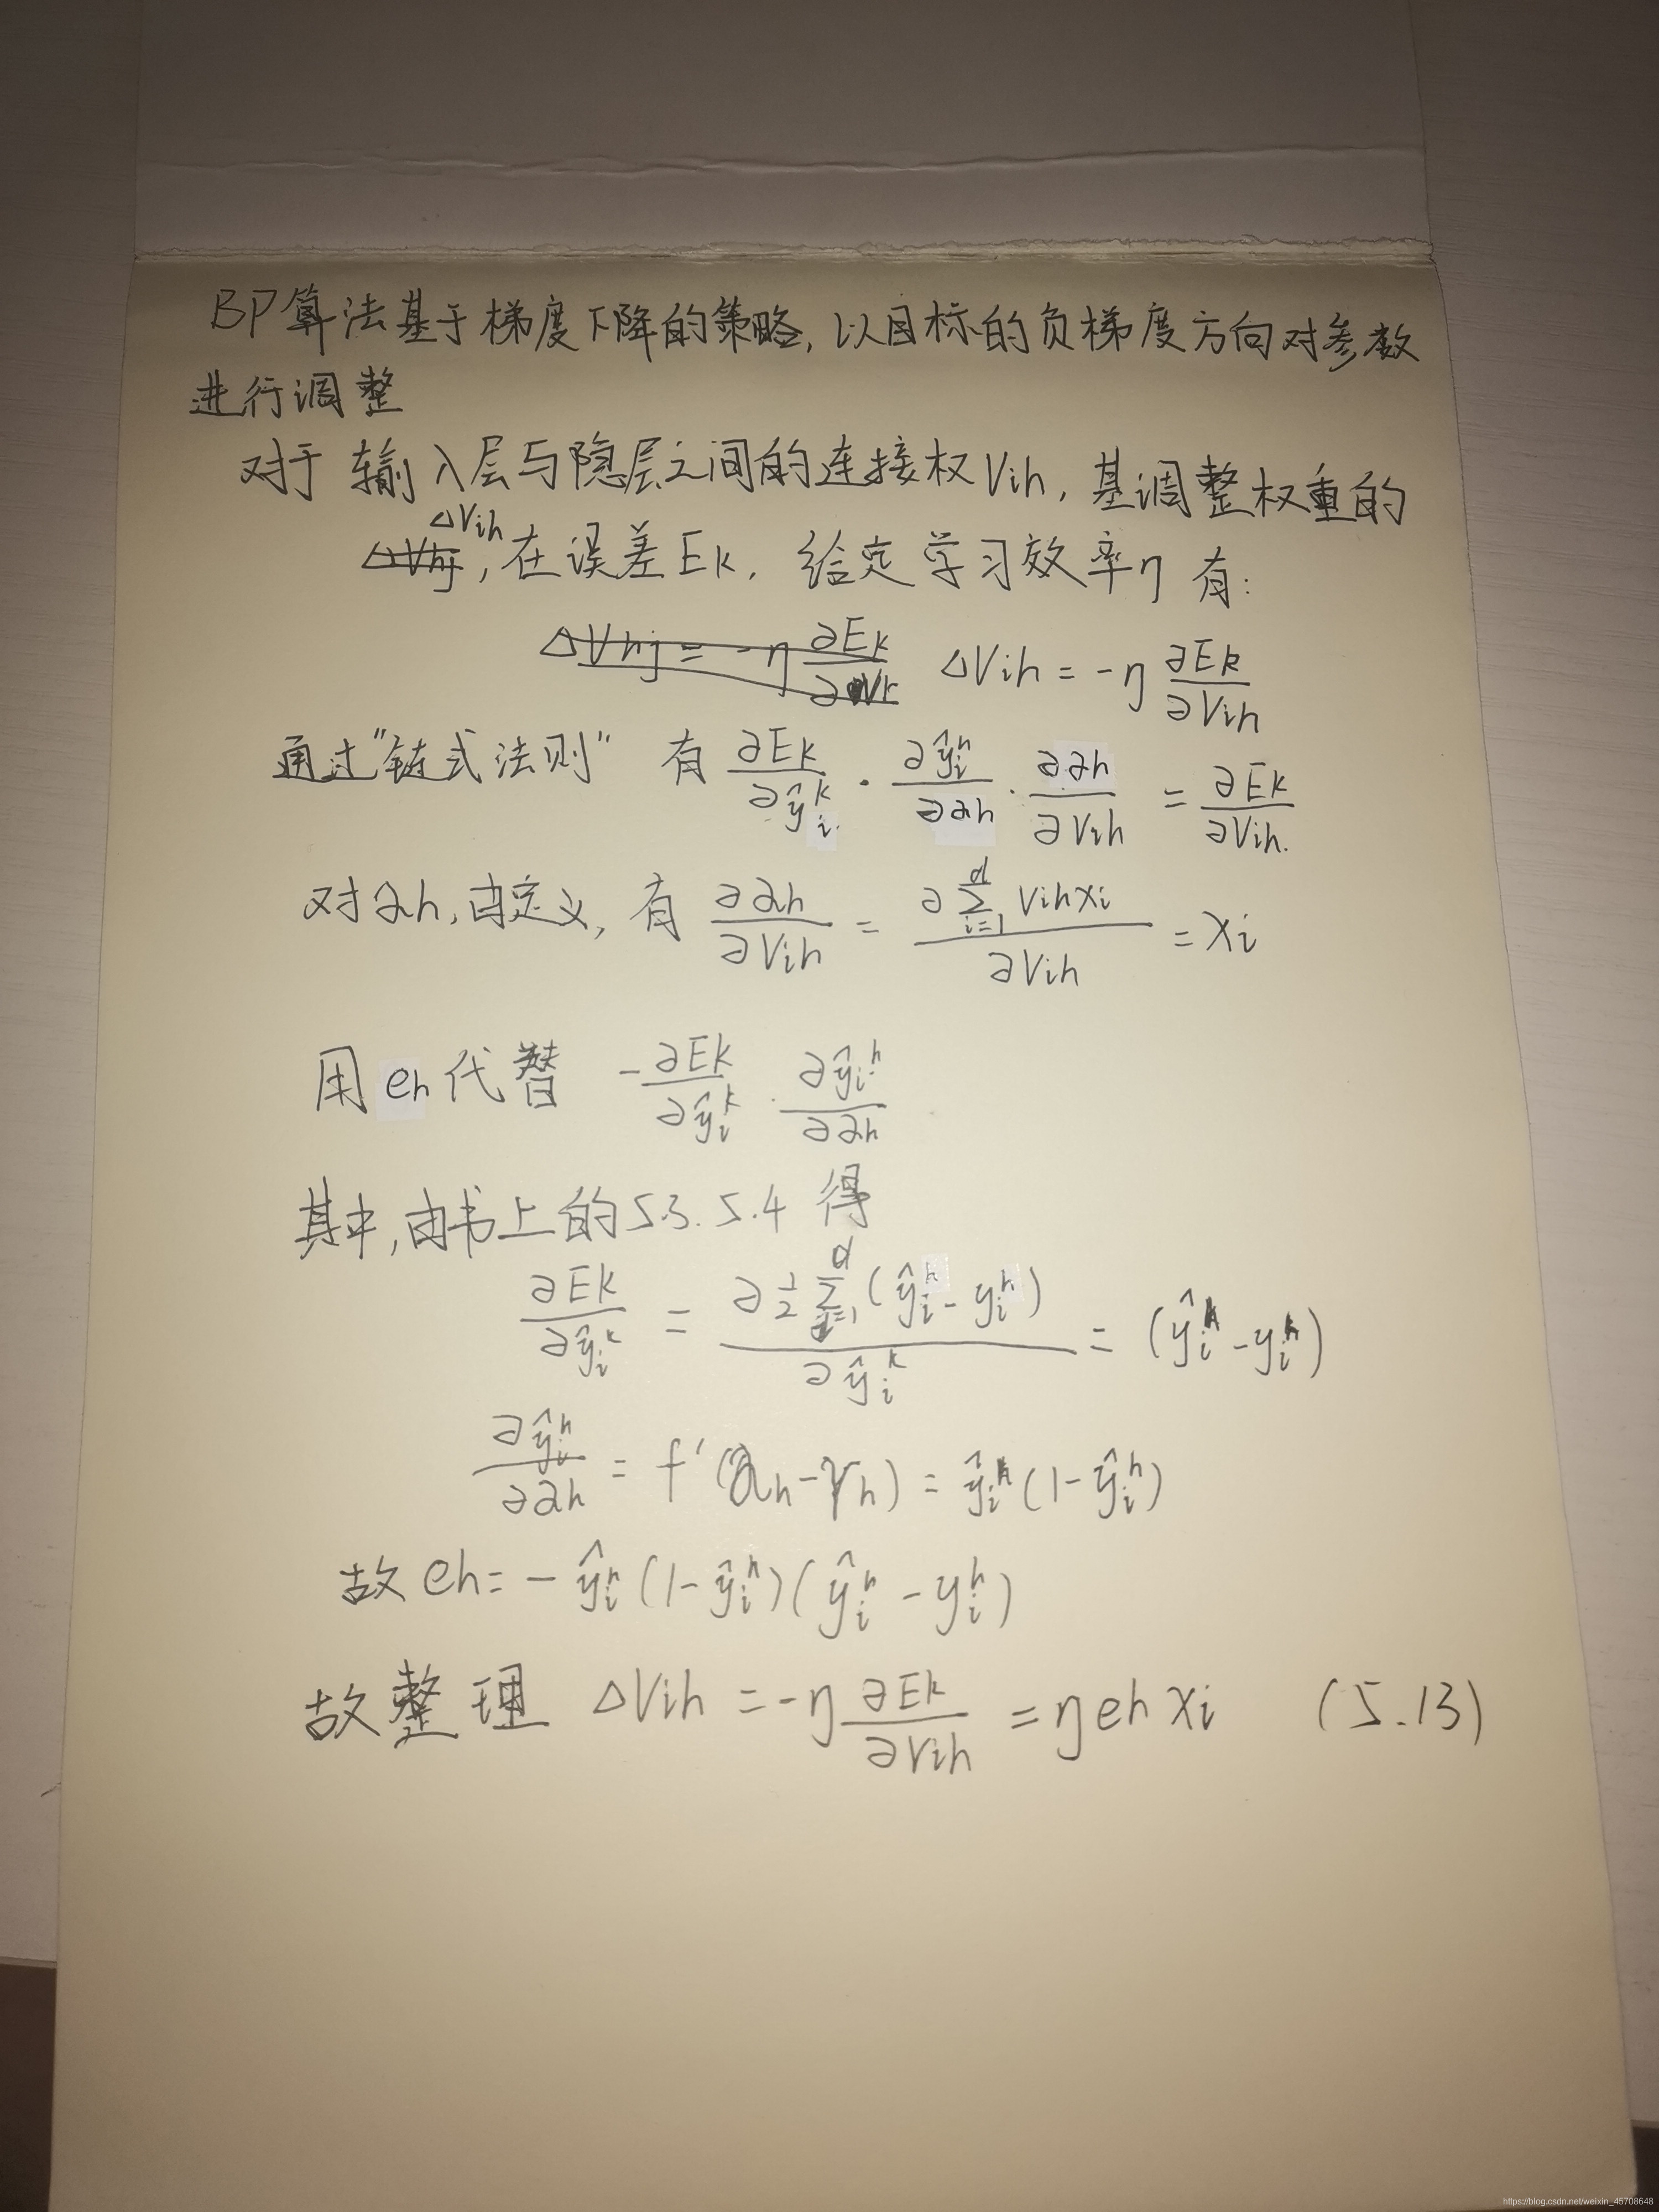 BP算法基于梯度下降的策略,以目标的负梯度方向对参数
进行调整
对于 输入层与隐层之间的连接权Vih,基调整权重的
ΔVih
ΔVhj,在误差Ek,给定学习效率η 有:
ΔVhj = -η ∂Ek/∂ ΔVih = -η ∂Ek/∂Vih
通过"链式法则" 有 ∂Ek/∂ŷᵢᵏ · ∂ŷᵢʰ/∂αh · ∂αh/∂Vih = ∂Ek/∂Vih.
对αh,由定义,有 ∂αh/∂Vih = ∂∑ᵢ₌₁ᵈ Vihxi/∂Vih = xi
用eh代替 -∂Ek/∂ŷᵢᵏ · ∂ŷᵢʰ/∂αh
其中,由书上的5.3. 5.4 得
∂Ek/∂ŷᵢᵏ = ∂½∑ᵢ₌₁ᵈ(ŷᵢʰ - yᵢʰ)/∂ŷᵢᵏ = (ŷᵢʰ - yᵢʰ)
∂ŷᵢʰ/∂αh = f'(αh-γh) = ŷᵢʰ(1-ŷᵢʰ)
故 eh = - ŷᵢʰ(1-ŷᵢʰ)(ŷᵢʰ - yᵢʰ)
故整理 ΔVih = -η ∂Ek/∂Vih = η eh xi (5.13)
https://blog.csdn.net/weixin_45708648